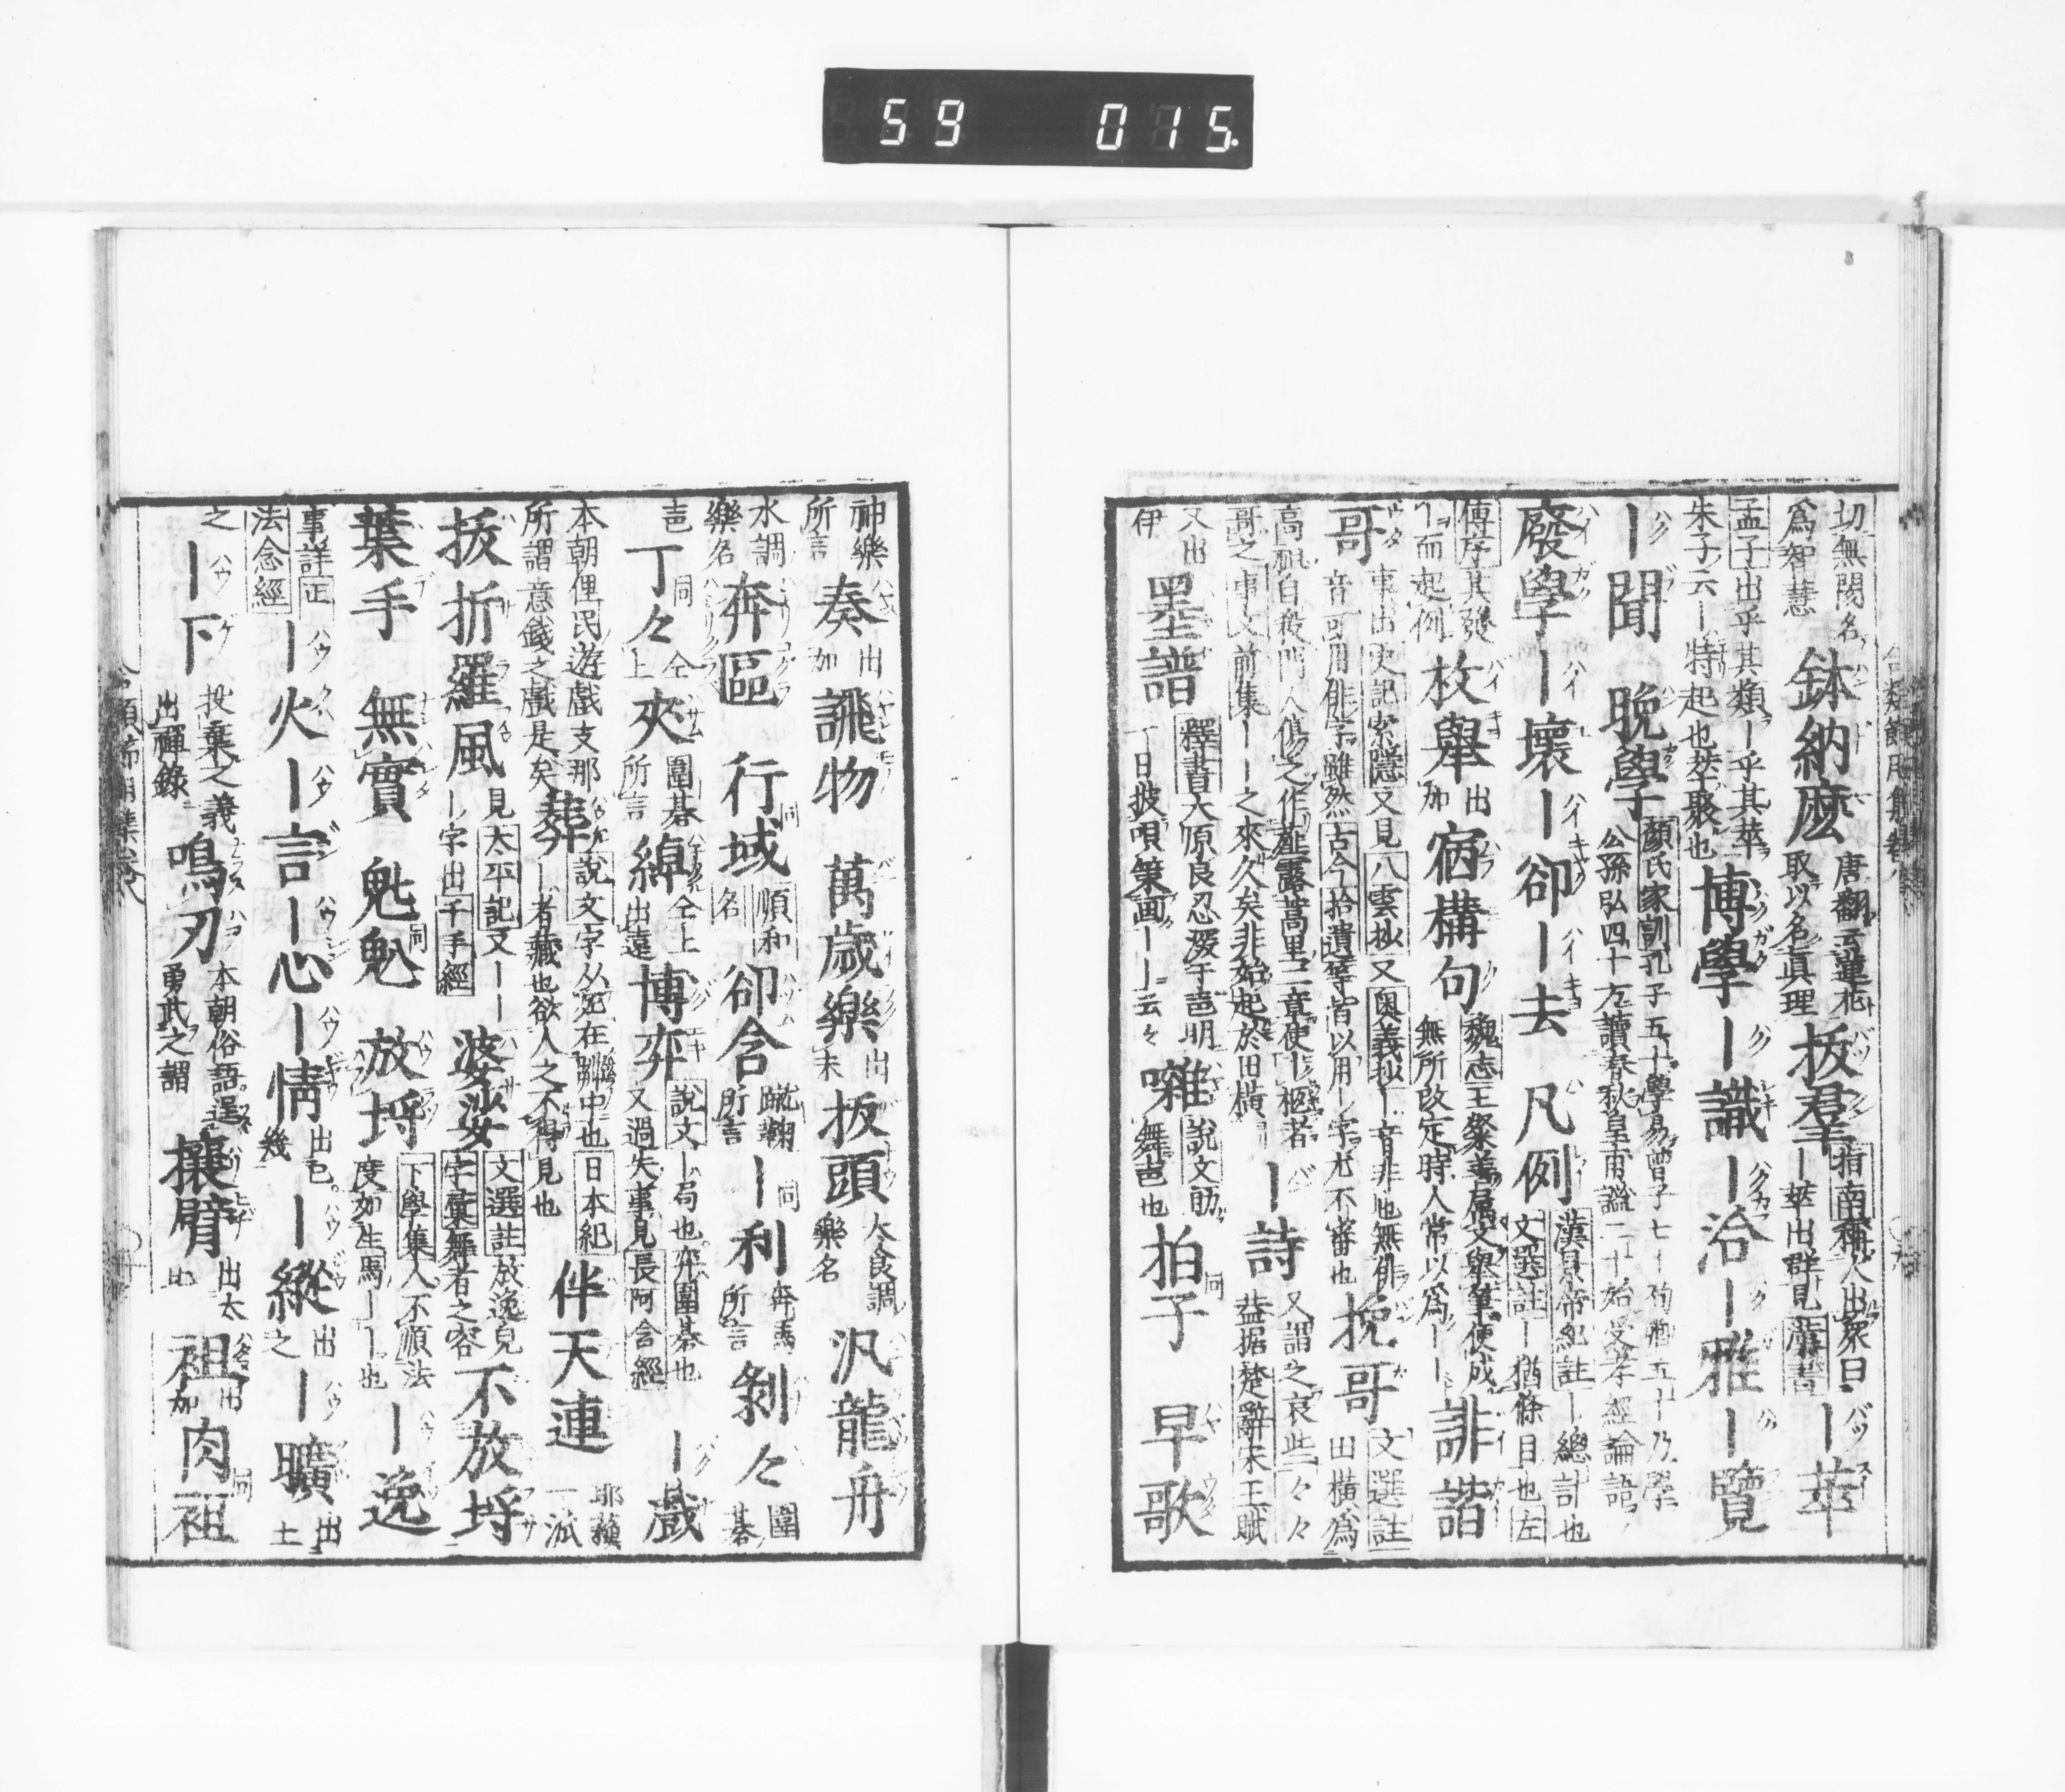 59 015.
切無閡名
爲智慧
鉢納麼
唐翻云蓮花
取以名眞理
抜羣
指南稱人出衆曰
ー萃出群見
ー萃
孟子出乎其類ー乎其萃
朱子云ー特起也萃聚也
博學ー識ー洽ー雅ー覽
ー聞
晩學
顏氏家訓孔子五十學易曾子七十
公孫弘四十方讀春秋皇甫謐二十始受孝經論語
廢學ー壞ー卻ー去
凡例
漢ー帝紀註ー總計也
文選註ー猶條目也左
傳序其發
ー而起例
枚舉
出
加
宿構句
魏志王粲善属文舉筆便成
無所改定時人常以爲ーー
誹諧
哥
事出史記索隱又見八雲抄又奥義抄ー音非也無俳
音可用俳字雖然古今拾遺等皆以用ー字尤不審也
挽哥
文選註
田横爲
高祖自殺門人傷之作薤露蒿里二章使ー柩者
哥之事文前集ーー之來久矣非始起於田横
ー詩
又謂之哀些々々
益据楚辭宋玉賦
又出
伊
墨譜
釋書大原良忍
一日披唄策画ーー云々
囃
說文
舞
拍子
早歌
神樂
所言
奏
出
加
譺物
萬歳樂
出
未
抜頭
太食調
樂名
汎龍舟
水調
樂名
奔區
行域
順和
名
卻含
蹴鞠
所言
ー利
奔馬
所言
剝々
圍
碁
丁々
同
仝
上
夾
圍碁
所言
綽
仝上
出遠
博弈
說文ー局也弈圍碁也
又過失事見長阿含經
ー戯
本朝俚民遊戯支那
所謂意錢之戲是矣
葬
說文字从死在茻中也日本紀
ー者藏也欲人之不得見也
伴天連
耶蘓
一派
抜折羅風
見太平記又ーー
ー字出千手經
婆娑
文選註放逸皃
字彙舞者之容
不放埒
葉手
無實
魁魁
放埒
下學集人不順法
度如生馬ーーー也
ー逸
事詳正
法念經
ー火ー言ー心ー情
出巳
幾
ー縱
出
之
ー曠
出
土
之
ー下
投棄之義
出禪錄
鳴刃
本朝俗語逞
勇武之謂
攘臂
出太
袒
出
加
肉袒